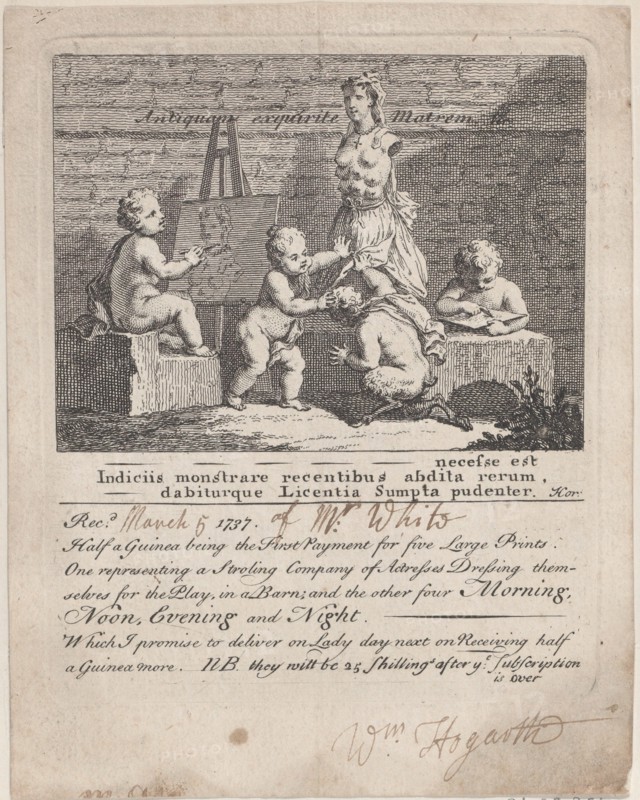 Antiquam exquirite Matrem
necesse est
Indiciis monstrare recentibus abdita rerum,
dabiturque Licentia Sumpta pudenter. Hor:
Rec.d March 5 1737. of Mr. White
Half a Guinea being the First Payment for five Large Prints.
One representing a Stroling Company of Actresses Dressing them-
selves for the Play, in a Barn; and the other four Morning,
Noon, Evening and Night.
Which I promise to deliver on Lady day next on Receiving half
a Guinea more. NB. they will be 25 Shilling.s after y.e Subscription
is over
Wm Hogarth